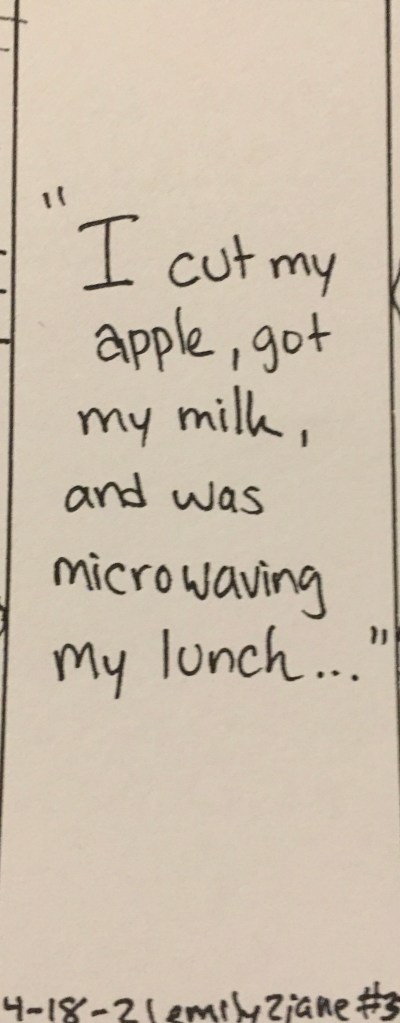 "I cut my
apple, got
my milk,
and was
microwaving
my lunch..."
4-18-21 emily2jane #3